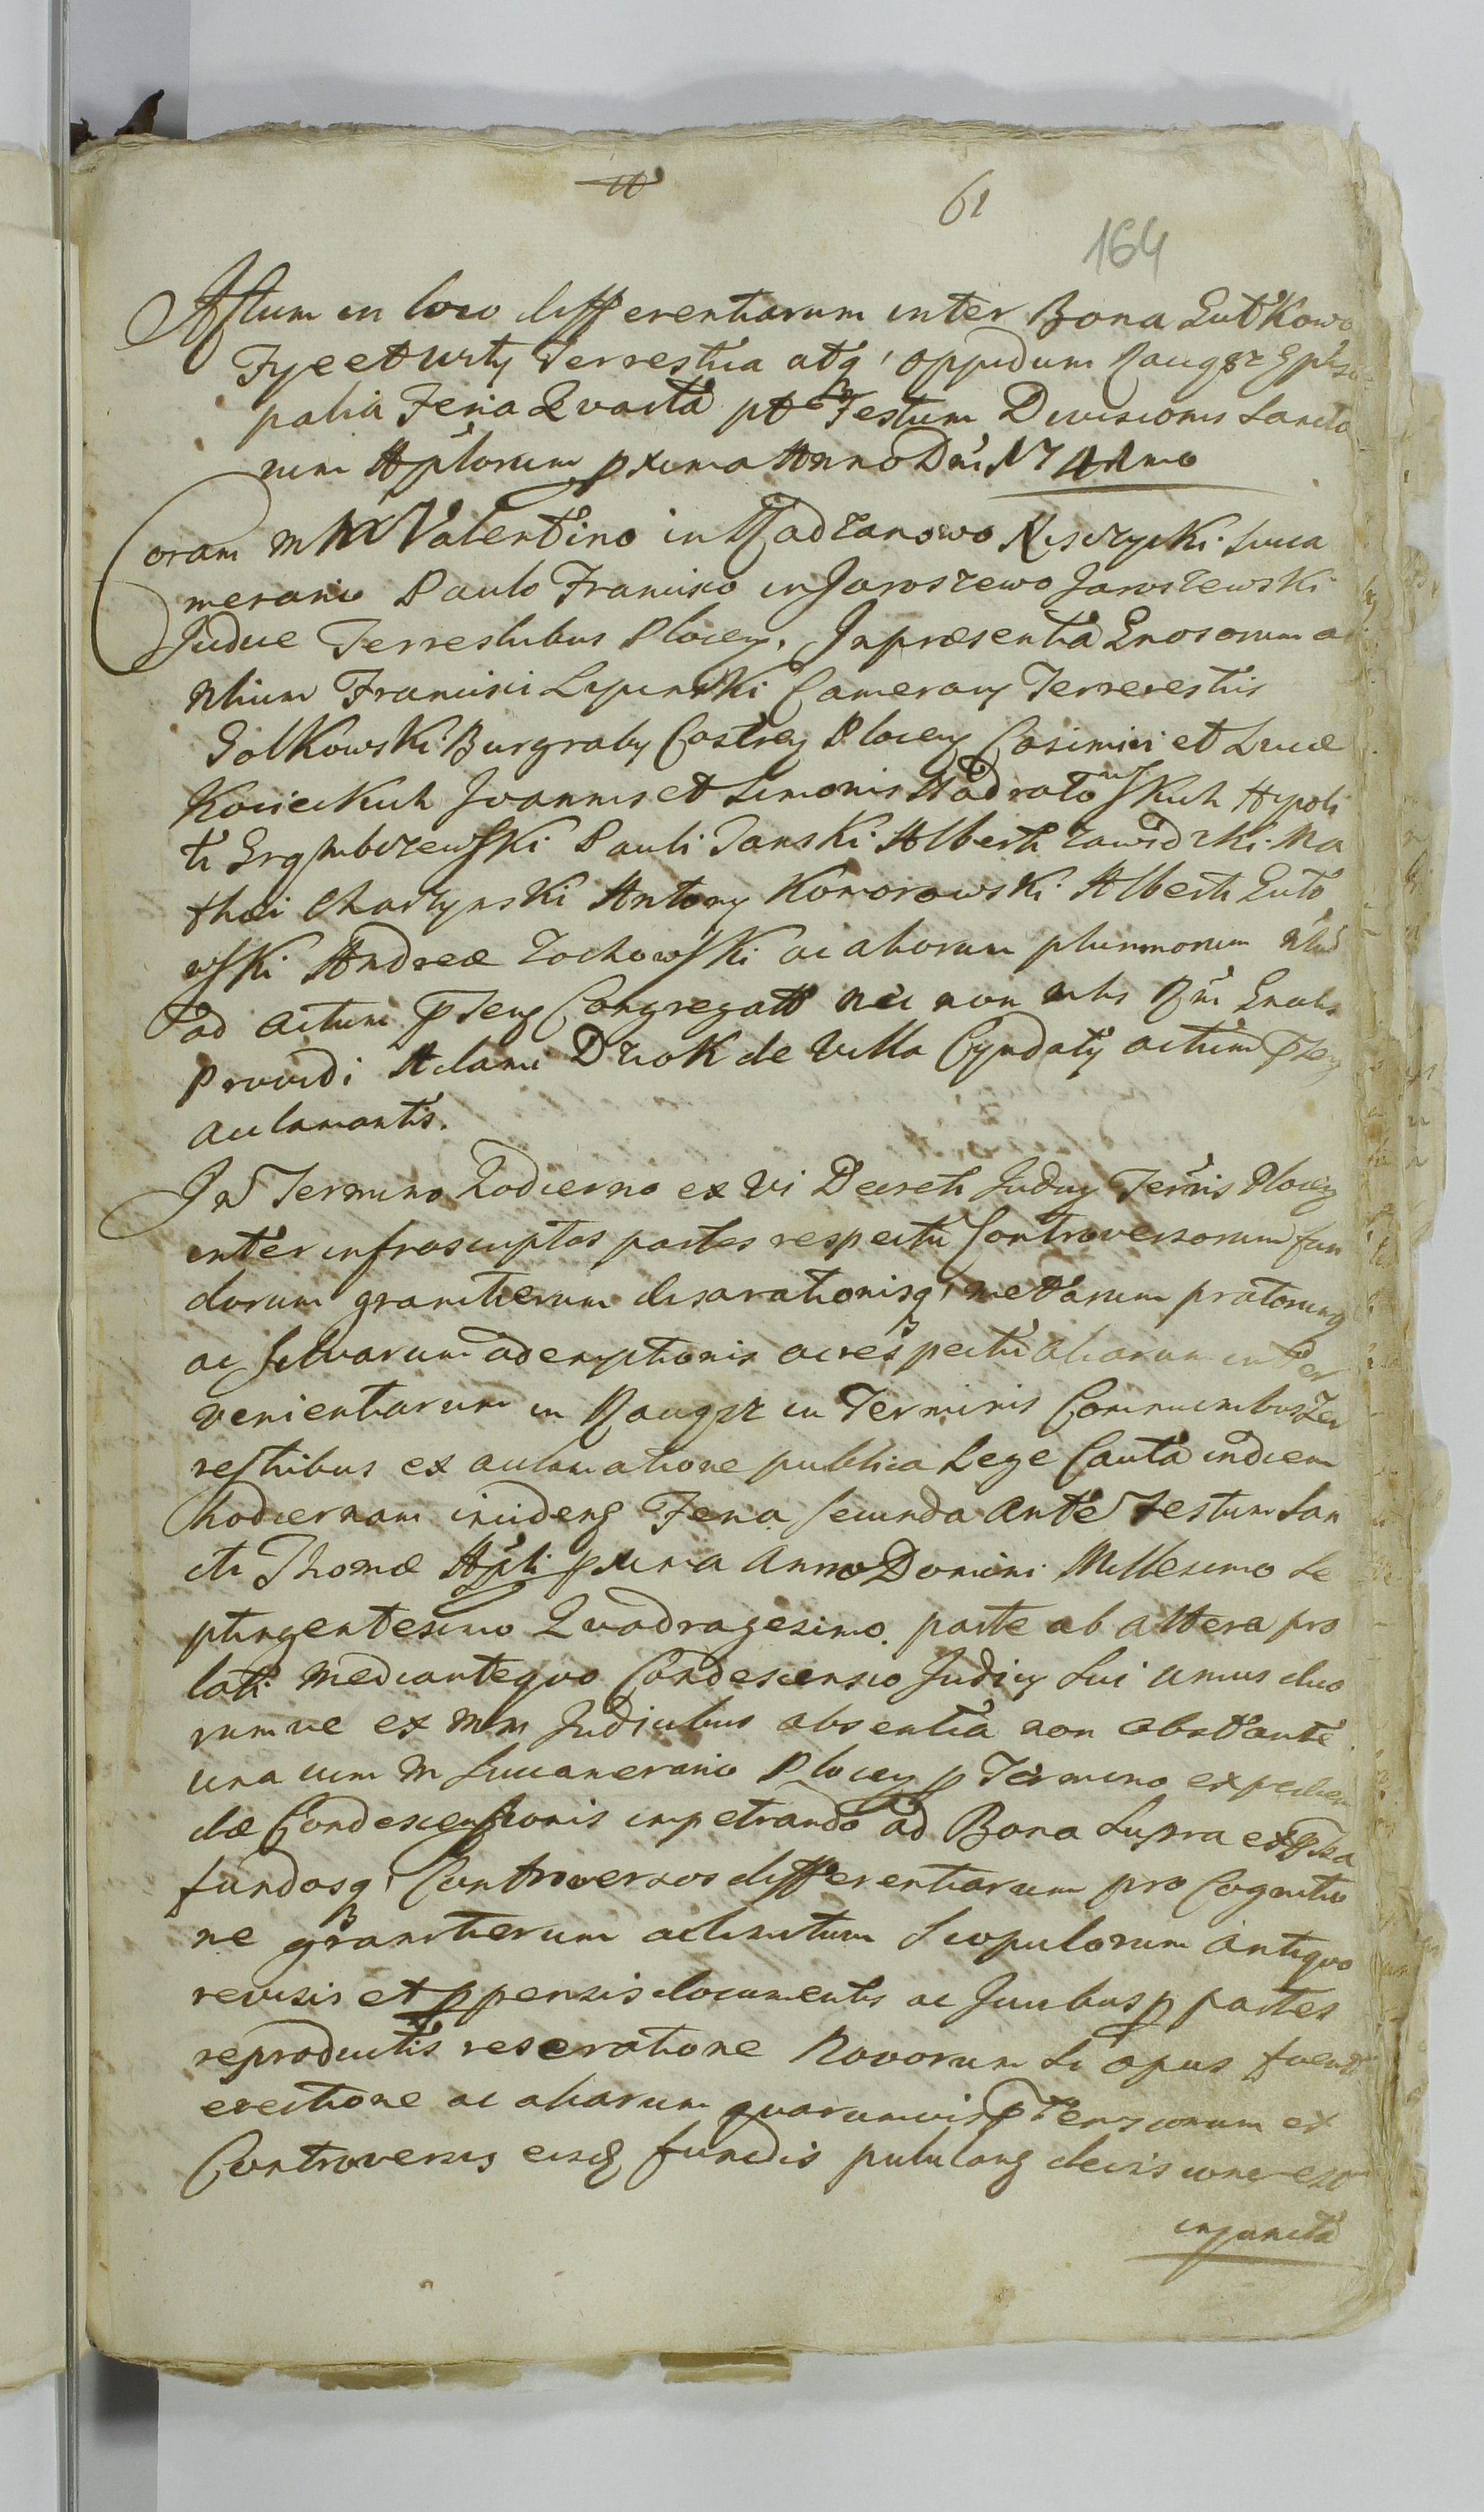 61
164
Actum in loco differentiarum inter Bona Gutkowo
Fyee et Urty Terrestria atq' oppidum Raugsz Episco
palia Feria Qvarta pt Festum Divisionis Sancto
rum Aplorum pxima Anno Dni 1741mo
Coram MM Valentino in Radzanowo Nisczycki Succa
merario Paulo Francisco in Jaroszewo Jaroszewski
Judice Terrestribus Plocen. In præsentia Gnosorum ac
Nlium Francisci Lipinski Camerarij Terrestris
Golkowski Burgraby Castren Plocen Casimiri et Lucæ
Kosickich Joannis et Simonis Nadratowskich Hypoli
ti Grembczewski Pauli Janski Alberti Zawidzki Ma
thæi Charzynski Antony Komorowski Alberti Guto
wski Andreæ Zochowski ac aliorum plurimorum Nliu
ad actum pnsen Congregat nec non Mtis Rni Gnalis
Providi Adami Dziok de Villa Cyndaty actum pnsen
acclamantis.
In Termino hodierno ex Vi Decreti Judicij Terris Plocen
inter infrascriptas partes respectu Controversorum fun
dorum granitierum disarationisq' mettarum pratorumq
ac silvarum ademptionis ac respectu aliarum inter
venientiarum in Raugsz in Terminis Communibus Ter
restribus ex acclamatione publica Lege Cauta in diem
hodiernam inciden Feria secunda ante Festum San
cti Thomæ Apli pxima Anno Domini Millesimo Se
ptingentesimo Quadragesimo parte ab altera pro
lati mediante quo Condescensio Judicij Sui unius duo
rumve ex MM Judicibus absentia non obstante
una cum M Succamerario Plocen p Termino expedien
dæ Condescensionis impetrando ad Bona supra expssa
fundosq' Controversos differentiarum pro Cognitio
ne granitierum aclimitum Scopulorum antiquo
revisis et ppensis documentis ac Juribus p partes
reproductis reseratione Novorum si opus fuerit
erectione ac aliarum quarumvis ptensionum ex
Controversis eisq fundis pululan decisione ex
injuncta